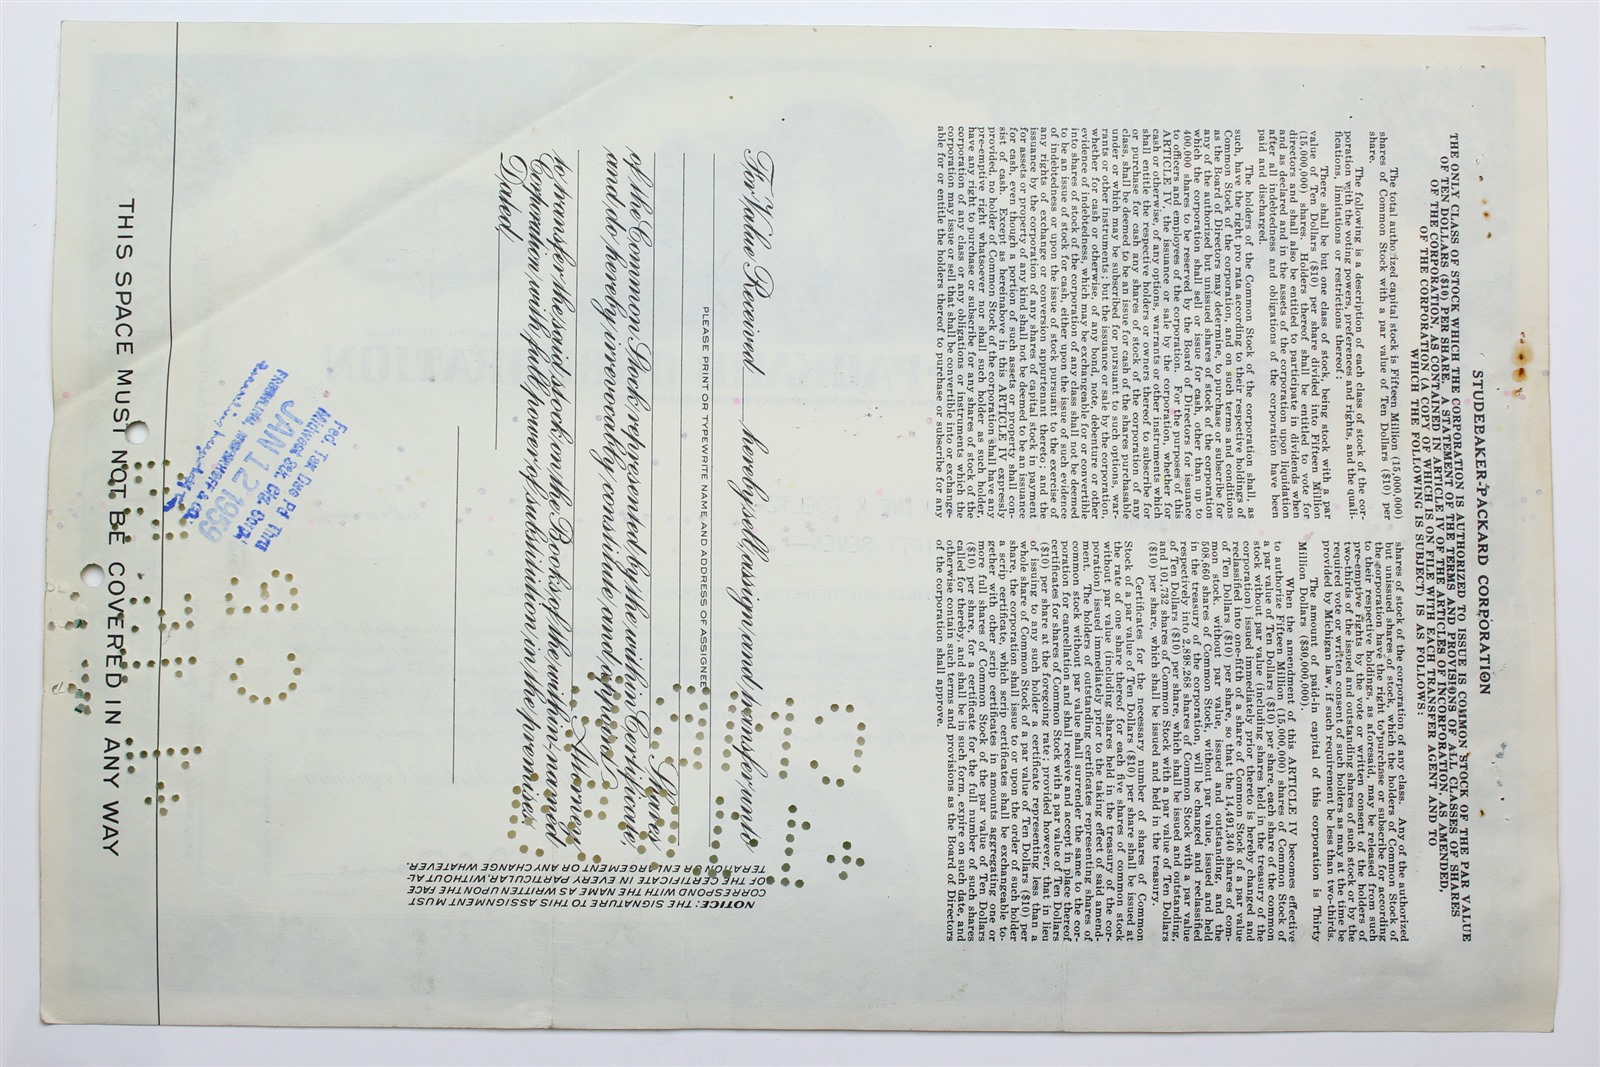 STUDEBAKER-PACKARD CORPORATION
THE ONLY CLASS OF STOCK WHICH THE CORPORATION IS AUTHORIZED TO ISSUE IS COMMON STOCK OF THE PAR VALUE
OF TEN DOLLARS ($10) PER SHARE. A STATEMENT OF THE TERMS AND PROVISIONS OF ALL CLASSES OF SHARES
OF THE CORPORATION, AS CONTAINED IN ARTICLE IV OF THE ARTICLES OF INCORPORATION, AS AMENDED,
OF THE CORPORATION (A COPY OF WHICH IS ON FILE WITH EACH TRANSFER AGENT AND TO
WHICH THE FOLLOWING IS SUBJECT) IS AS FOLLOWS:
The total authorized capital stock is Fifteen Million (15,000,000)
shares of Common Stock with a par value of Ten Dollars ($10) per
share.
The following is a description of each class of stock of the cor-
poration with the voting powers, preferences and rights, and the quali-
fications, limitations or restrictions thereof:
There shall be but one class of stock, being stock with a par
value of Ten Dollars ($10) per share divided into Fifteen Million
(15,000,000) shares. Holders thereof shall be entitled to vote for
directors and shall also be entitled to participate in dividends when
and as declared and in the assets of the corporation upon liquidation
after all indebtedness and obligations of the corporation have been
paid and discharged.
The holders of the Common Stock of the corporation shall, as
such, have the right pro rata according to their respective holdings of
Common Stock of the corporation, and on such terms and conditions
as the Board of Directors may determine, to purchase or subscribe for
any of the authorized but unissued shares of stock of the corporation
which the corporation shall sell or issue for cash, other than up to
400,000 shares to be reserved by the Board of Directors for issuance
to officers and employees of the corporation. For the purposes of this
ARTICLE IV, the issuance or sale by the corporation, whether for
cash or otherwise, of any options, warrants or other instruments which
shall entitle the respective holders or owners thereof to subscribe for
or purchase for cash any shares of stock of the corporation of any
class, shall be deemed to be an issue for cash of the shares purchasable
under or which may be subscribed for pursuant to such options, war-
rants or other instruments; but the issuance or sale by the corporation,
whether for cash or otherwise, of any bond, note, debenture or other
evidence of indebtedness, which may be exchangeable for or convertible
into shares of stock of the corporation of any class shall not be deemed
to be an issue of stock for cash, either upon the issue of such evidence
of indebtedness or upon the issue of stock pursuant to the exercise of
any rights of exchange or conversion appurtenant thereto; and the
issuance by the corporation of any shares of capital stock in payment
for assets or property of any kind shall not be deemed to be an issuance
for cash, even though a portion of such assets or property shall con-
sist of cash. Except as hereinabove in this ARTICLE IV expressly
provided, no holder of Common Stock of the corporation shall have any
pre-emptive right whatsoever nor shall such holder, as such holder,
have any right to purchase or subscribe for any shares of stock of the
corporation of any class or any obligations or instruments which the
corporation may issue or sell that shall be convertible into or exchange-
able for or entitle the holders thereof to purchase or subscribe for any
shares of stock of the corporation of any class. Any of the authorized
but unissued shares of stock, which the holders of Common Stock of
the corporation have the right to purchase or subscribe for according
to their respective holdings, as aforesaid, may be released from such
pre-emptive right by the vote or written consent of the holders of
two-thirds of the issued and outstanding shares of such stock or by the
required vote or written consent of such holders as may at the time be
provided by Michigan law, if such requirement be less than two-thirds.
The amount of paid-in capital of this corporation is Thirty
Million Dollars ($30,000,000).
When the amendment of this ARTICLE IV becomes effective
to authorize Fifteen Million (15,000,000) shares of Common Stock of
a par value of Ten Dollars ($10) per share, each share of the common
stock without par value (including shares held in the treasury of the
corporation) issued immediately prior thereto is hereby changed and
reclassified into one-fifth of a share of Common Stock of a par value
of Ten Dollars ($10) per share, so that the 14,491,340 shares of com-
mon stock without par value, issued and outstanding, and the
508,660 shares of Common Stock, without par value, issued and held
in the treasury of the corporation, will be changed and reclassified
respectively into 2,898,268 shares of Common Stock with a par value
of Ten Dollars ($10) per share, which shall be issued and outstanding,
and 101,732 shares of Common Stock with a par value of Ten Dollars
($10) per share, which shall be issued and held in the treasury.
Certificates for the necessary number of shares of Common
Stock of a par value of Ten Dollars ($10) per share shall be issued at
the rate of one share thereof for each five shares of common stock
without par value (including shares held in the treasury of the cor-
poration) issued immediately prior to the taking effect of said amend-
ment. The holders of outstanding certificates representing shares of
common stock without par value shall surrender the same to the cor-
poration for cancellation and shall receive and accept in place thereof
certificates for shares of Common Stock with a par value of Ten Dollars
($10) per share at the foregoing rate; provided however, that in lieu
of issuing to any such holder a certificate representing less than a
whole share of Common Stock of a par value of Ten Dollars ($10) per
share, the corporation shall issue to or upon the order of such holder
a scrip certificate, which scrip certificates shall be exchangeable to-
gether with other scrip certificates in amounts aggregating one or
more full shares of Common Stock of the par value of Ten Dollars
($10) per share, for a certificate for the full number of such shares
called for thereby, and shall be in such form, expire on such date, and
otherwise contain such terms and provisions as the Board of Directors
of the corporation shall approve.
For Value Received hereby sell, assign and transfer, unto
PLEASE PRINT OR TYPEWRITE NAME AND ADDRESS OF ASSIGNEE
Shares
of the Common Stock represented by the within Certificate,
and do hereby irrevocably constitute and appoint
Attorney
to transfer the said stock on the Books of the within-named
Corporation, with full power of substitution, in the premises.
Dated,
NOTICE: THE SIGNATURE TO THIS ASSIGNMENT MUST
CORRESPOND WITH THE NAME AS WRITTEN UPON THE FACE
OF THE CERTIFICATE IN EVERY PARTICULAR WITHOUT AL-
TERATION OR ENLARGEMENT OR ANY CHANGE WHATEVER.
Fed. Tax Due Pd Thru
Midwest Stk Clg. Corp.
JAN 12 1959
THIS SPACE MUST NOT BE COVERED IN ANY WAY